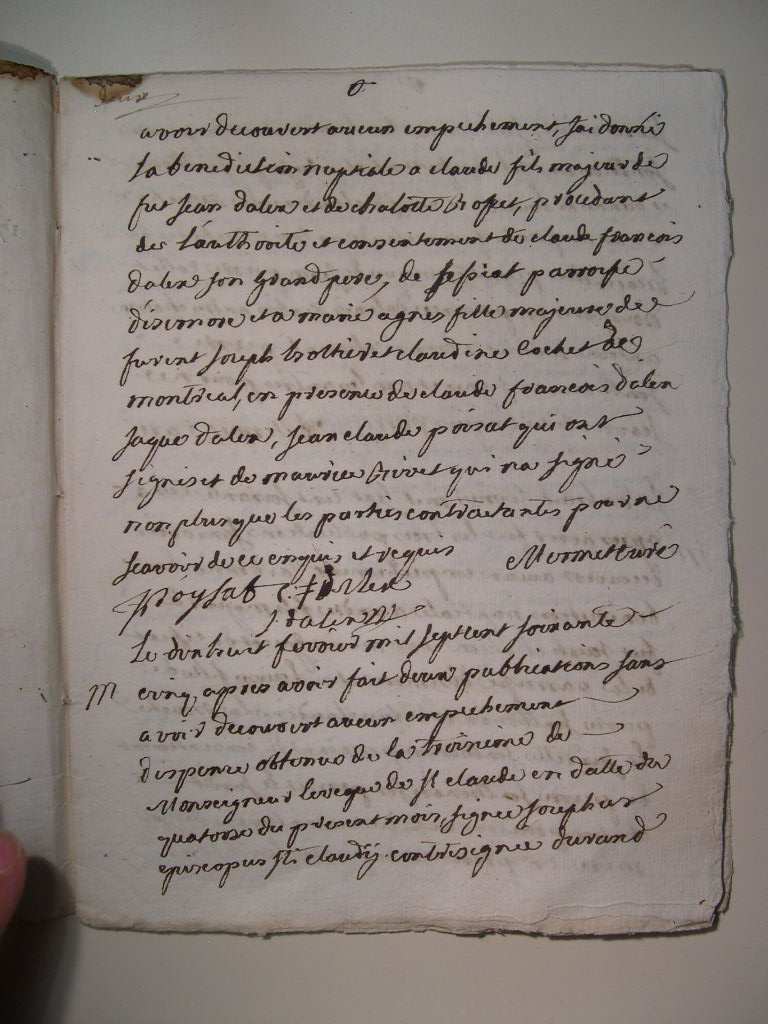 avoir decouvert aucun empechement, j'ai donné
la benediction nuptiale a claude fils majeur de
fut jean dalex et de chalotte, procedant
de l'authorité et consentement de claude francois
dalex son grand pere, de parroisse
d'isernore et a marie agnes fille majeure de
furent joseph holtier et claudine Cochet de
montreal, en presence de claude francois dalex
jaque dalex, jean claude poisat qui ont
signés et de maurice qui na signé
non plus que les parties contractantes pour ne
scavoir de ce enquis et requis Mermet curé
Poysat C. f. dalex
J dalex
Le dixhuit fevrier mil septcent soixante
M cinq, apres avoir fait deux publications sans
avoir decouvert aucun empechement
dispence obtenue de la troisieme de
Monseigneur leveque de st claude en datte du
quatorse du present mois, signée josephus
episcopus sti claudij contresignée durand